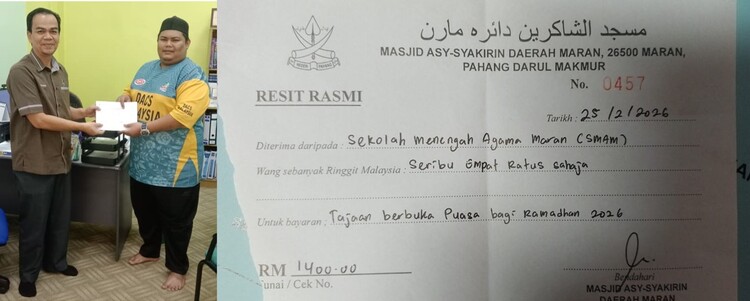 DACS
MALAYSIA
مسجد الشاكرين دائره مارن
MASJID ASY-SYAKIRIN DAERAH MARAN, 26500 MARAN,
PAHANG DARUL MAKMUR
No. 0457
RESIT RASMI
Tarikh: 25/2/2026
Diterima daripada: Sekolah menengah Agama Maran (SMAM)
Wang sebanyak Ringgit Malaysia: Seribu Empat Ratus sahaja
Untuk bayaran: Tajaan berbuka Puasa bagi Ramadhan 2026
RM 1400.00
Tunai / Cek No.
Bendahari
MASJID ASY-SYAKIRIN
DAERAH MARAN